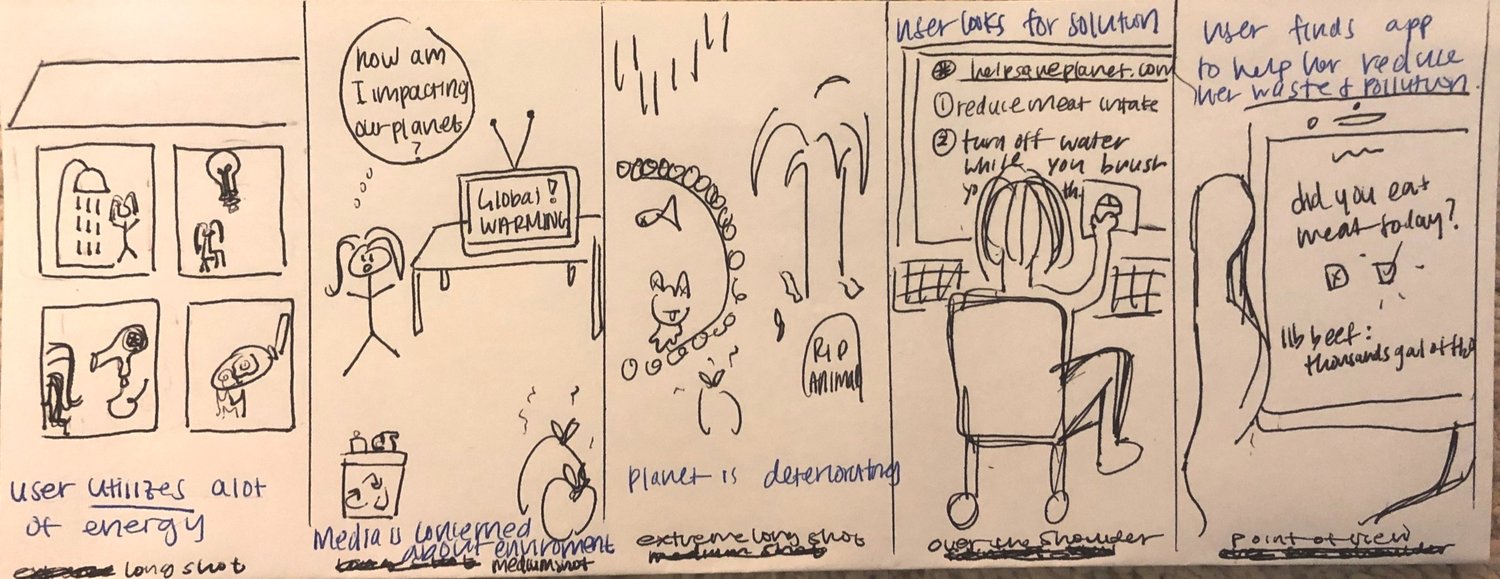 user utilizes alot
of energy
long shot
how am
I impacting
our planet
?
Global!
WARMING
Media is concerned
about enviroment
mediumshot
RIP
ANIMAL
planet is deteriorating
extreme long shot
medium shot
user looks for solution
helpsaveplanet.com
① reduce meat intake
② turn off water
while you brush
yo th
over the shoulder
user finds app
to help her reduce
her waste & pollution
did you eat
meat today?
1lb beef:
thousands gal of H2O
point of view